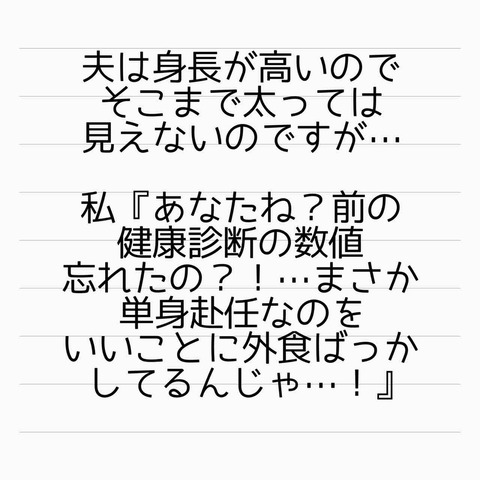 夫は身長が高いので
そこまで太っては
見えないのですが…
私『あなたね？前の
健康診断の数値
忘れたの？！…まさか
単身赴任なのを
いいことに外食ばっか
してるんじゃ…！』